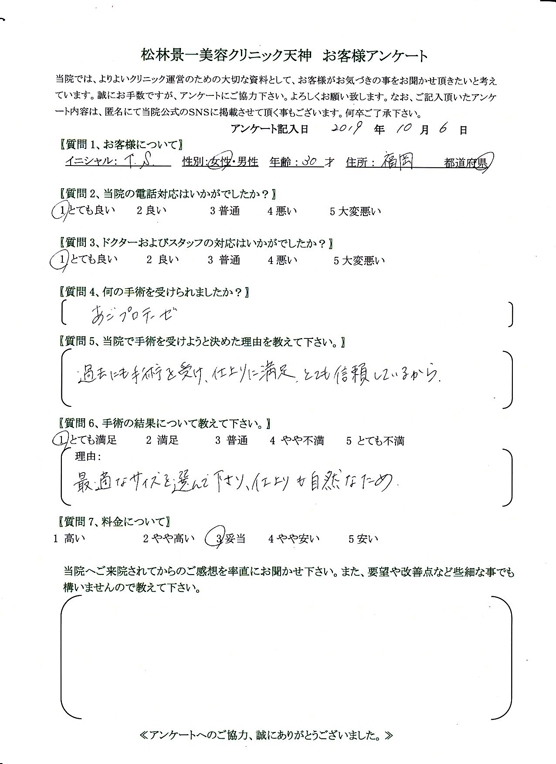 松林景一美容クリニック天神　お客様アンケート
当院では、よりよいクリニック運営のための大切な資料として、お客様がお気づきの事をお聞かせ頂きたいと考え
ています。誠にお手数ですが、アンケートにご協力下さい。よろしくお願い致します。なお、ご記入頂いたアンケ
ート内容は、匿名にて当院公式のSNSに掲載させて頂く事もございます。何卒ご了承下さい。
アンケート記入日　2019 年 10 月 6 日
〖質問1、お客様について〗
イニシャル： T.S. 性別:女性・男性 年齢:30 才 住所： 福岡 都道府県
〖質問2、当院の電話対応はいかがでしたか？〗
1とても良い 2 良い 3 普通 4 悪い 5 大変悪い
〖質問3、ドクターおよびスタッフの対応はいかがでしたか？〗
1 とても良い 2 良い 3 普通 4 悪い 5 大変悪い
〖質問4、何の手術を受けられましたか？〗
あごプロテーゼ
〖質問5、当院で手術を受けようと決めた理由を教えて下さい。〗
過去にも手術を受け、仕上りに満足、とても信頼しているから、
〖質問6、手術の結果について教えて下さい。〗
1とても満足 2 満足 3 普通 4 やや不満 5 とても不満
理由:
最適なサイズを選んで下さり、仕上りも自然なため、
〖質問7、料金について〗
1 高い 2 やや高い 3 妥当 4 やや安い 5 安い
当院へご来院されてからのご感想を率直にお聞かせ下さい。また、要望や改善点など些細な事でも
構いませんので教えて下さい。
≪アンケートへのご協力、誠にありがとうございました。≫